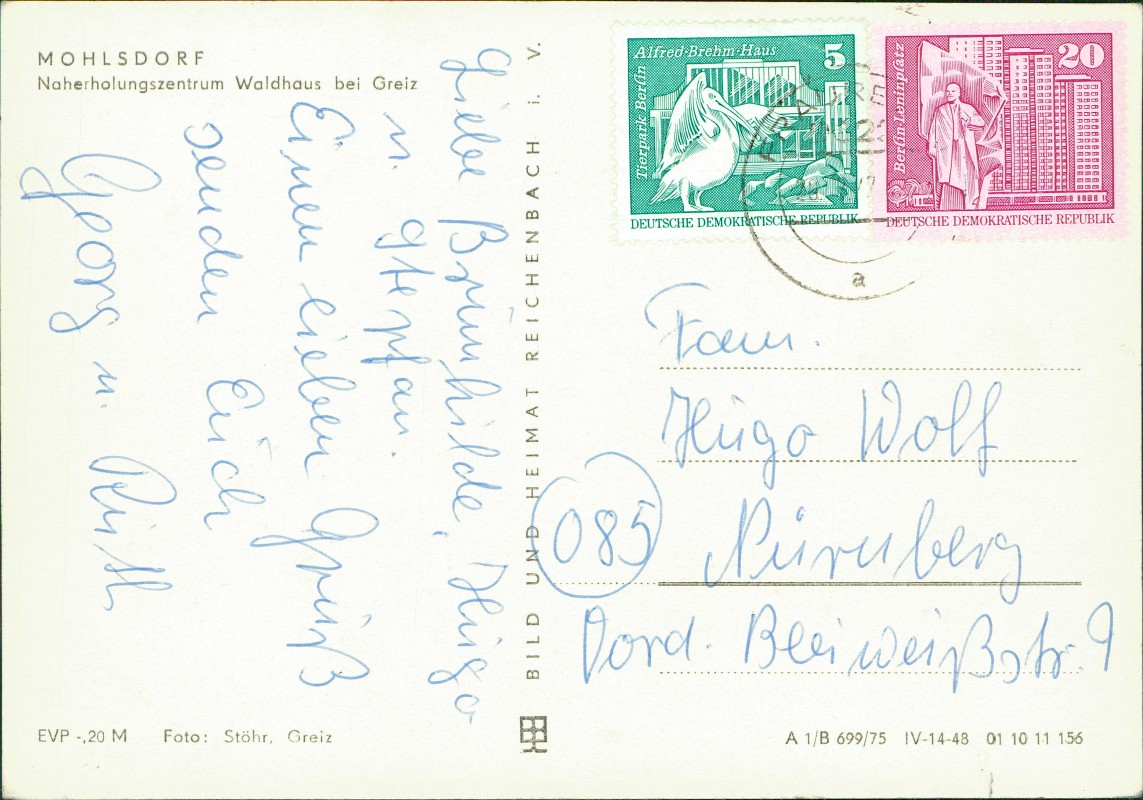 MOHLSDORF
Naherholungszentrum Waldhaus bei Greiz
Liebe Brünhilde, Hugo
u. Stepfan.
Einen lieben Gruß
senden Euch
Georg u. Ruth
BILD UND HEIMAT REICHENBACH i. V.
Alfred-Brehm-Haus
5
Tierpark Berlin
DEUTSCHE DEMOKRATISCHE REPUBLIK
20
Berlin-Leninplatz
DEUTSCHE DEMOKRATISCHE REPUBLIK
a
Fam.
Hugo Wolf
085 Nürnberg
Vord. Bleiweißstr. 9
EVP -,20 M Foto: Stöhr, Greiz
A 1/B 699/75 IV-14-48 01 10 11 156